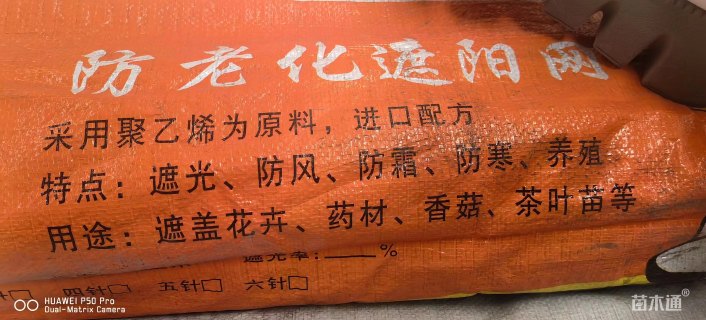 防老化遮阳网
采用聚乙烯为原料，进口配方
特点：遮光、防风、防霜、防寒、养殖
用途：遮盖花卉、药材、香菇、茶叶苗等
遮光率：____%
针□ 四针□ 五针□ 六针□
HUAWEI P50 Pro
Dual-Matrix Camera
苗木通®